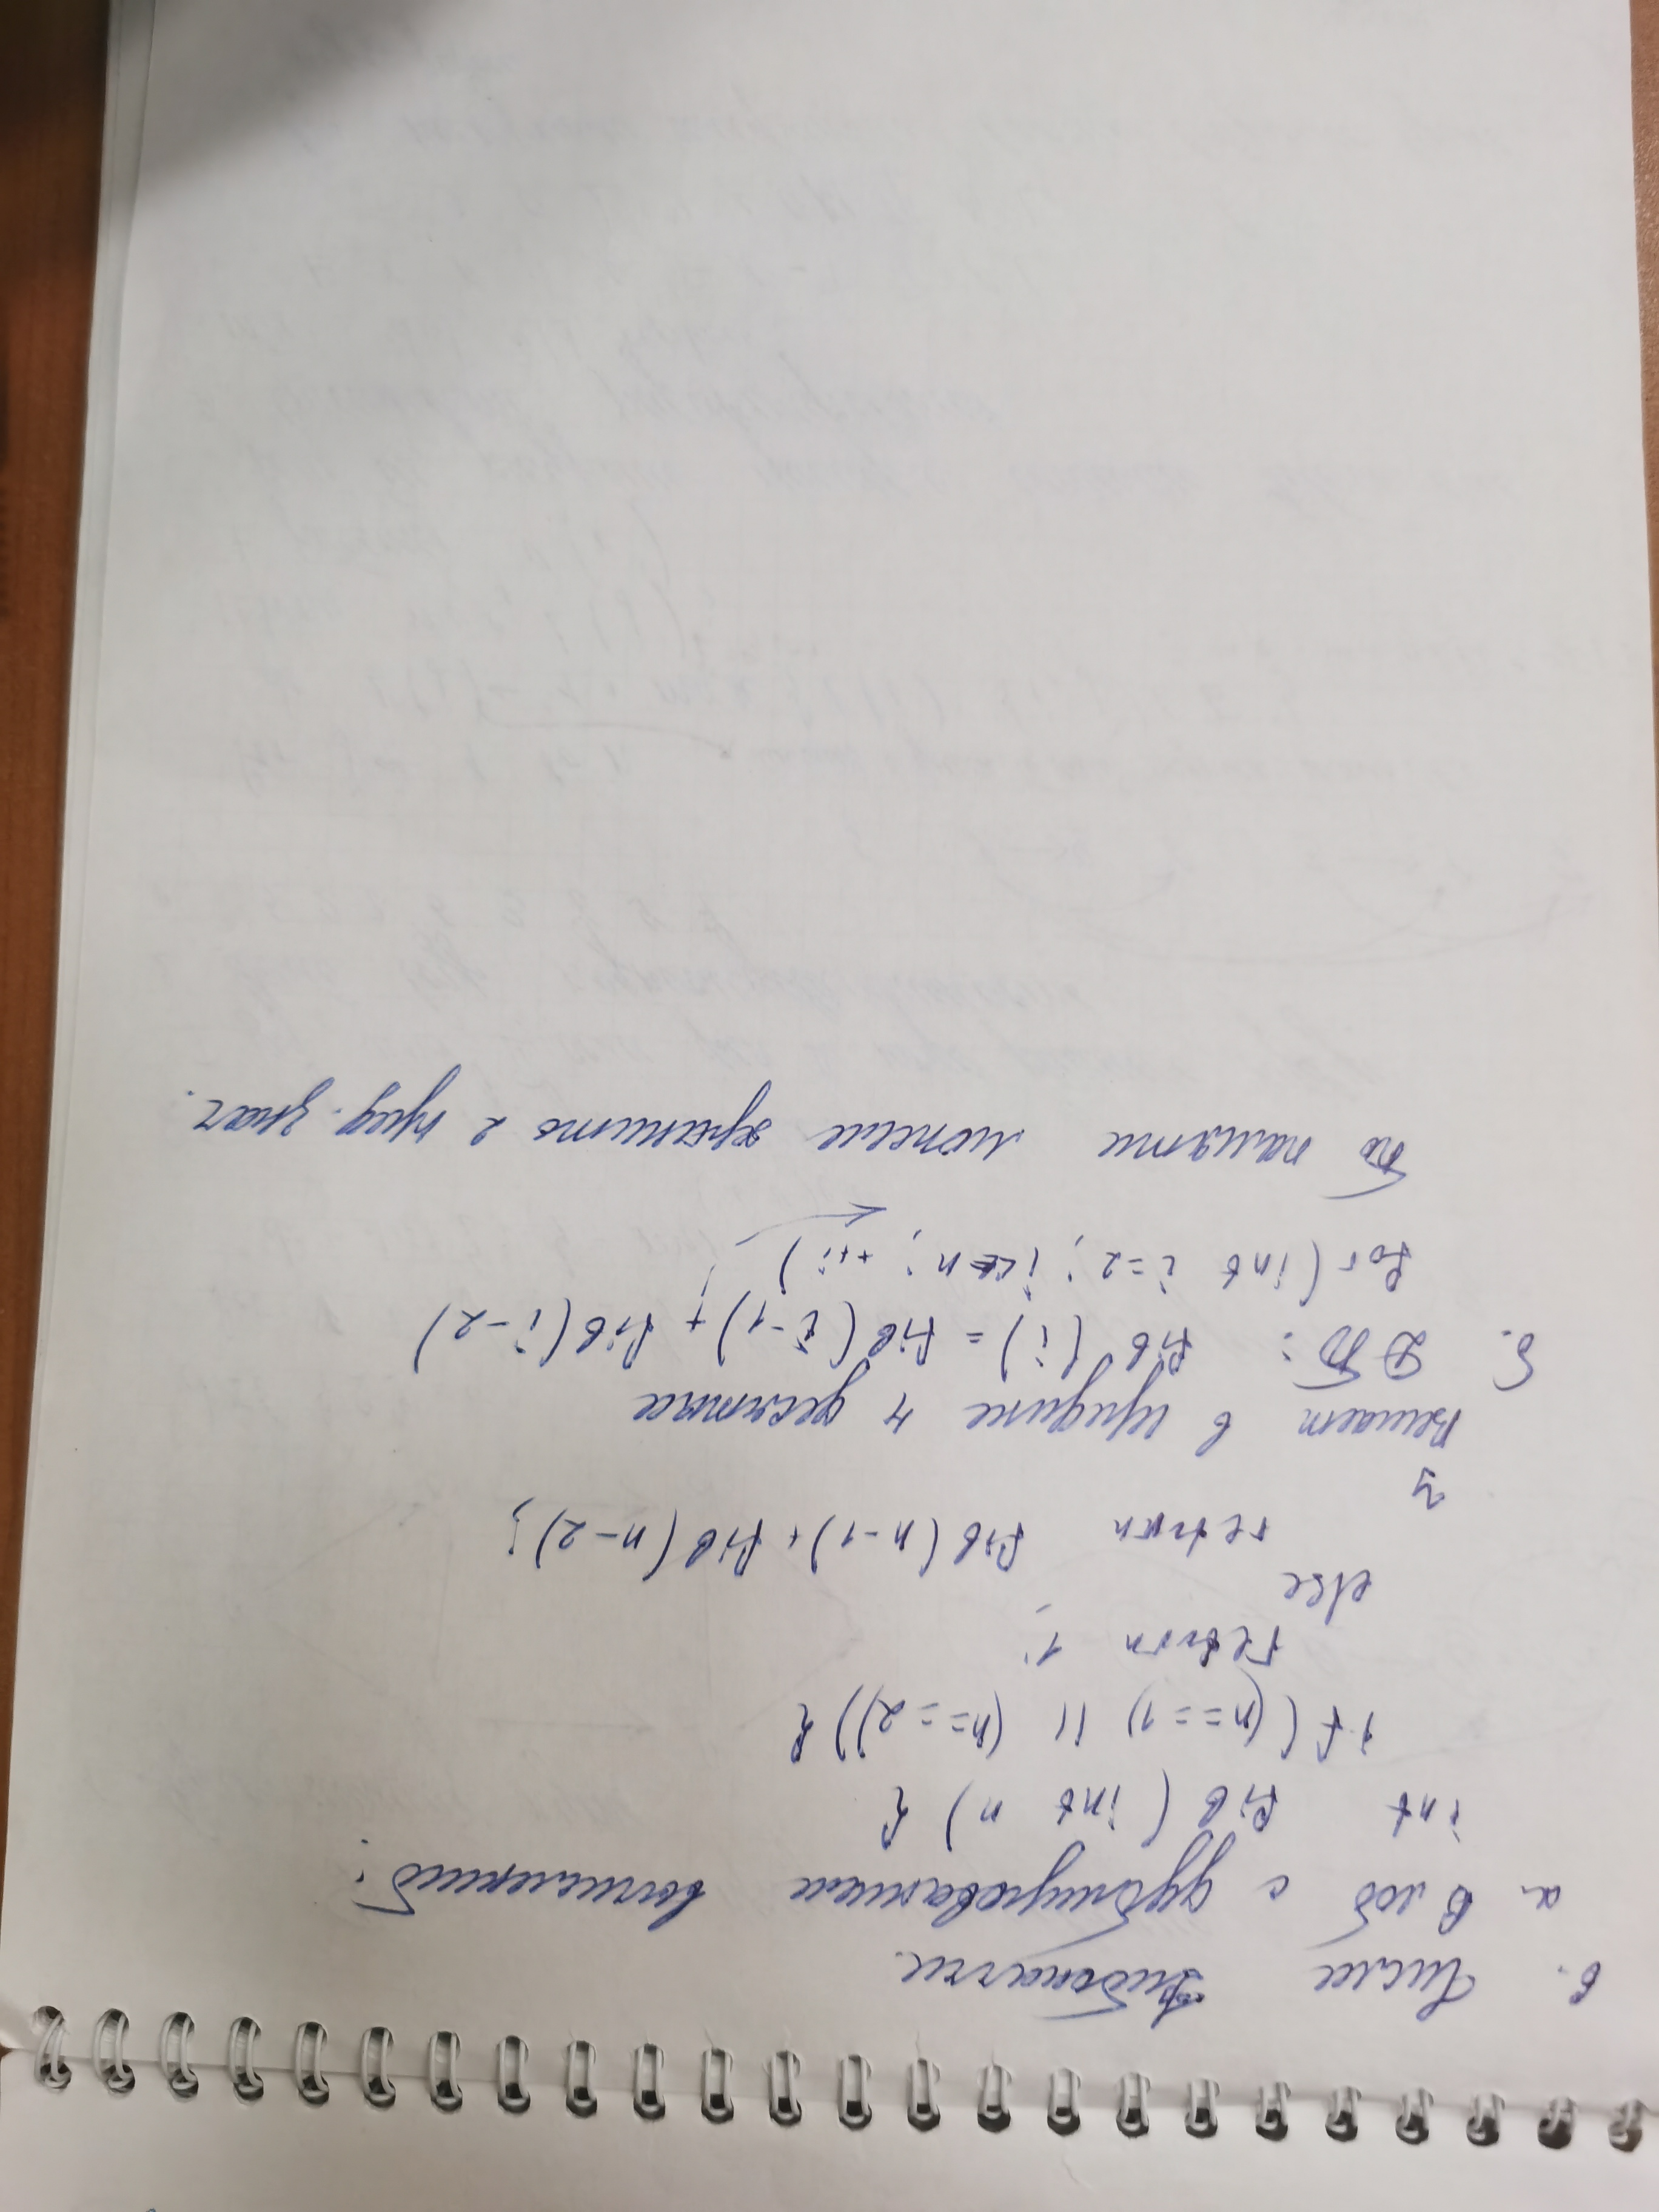 6. Числа Фибоначчи.
а. В лоб с дублированием вычислений:
int fib (int n) {
if ((n==1) || (n==2)) {
return 1;
else
return fib(n-1)+fib(n-2);
}
в середине 4 десятка
б. ДП: fib (i) = fib(i-1) + fib(i-2)
for(int i=2; i<=n; ++i)
По памяти можем хранить 2 пред. знач.